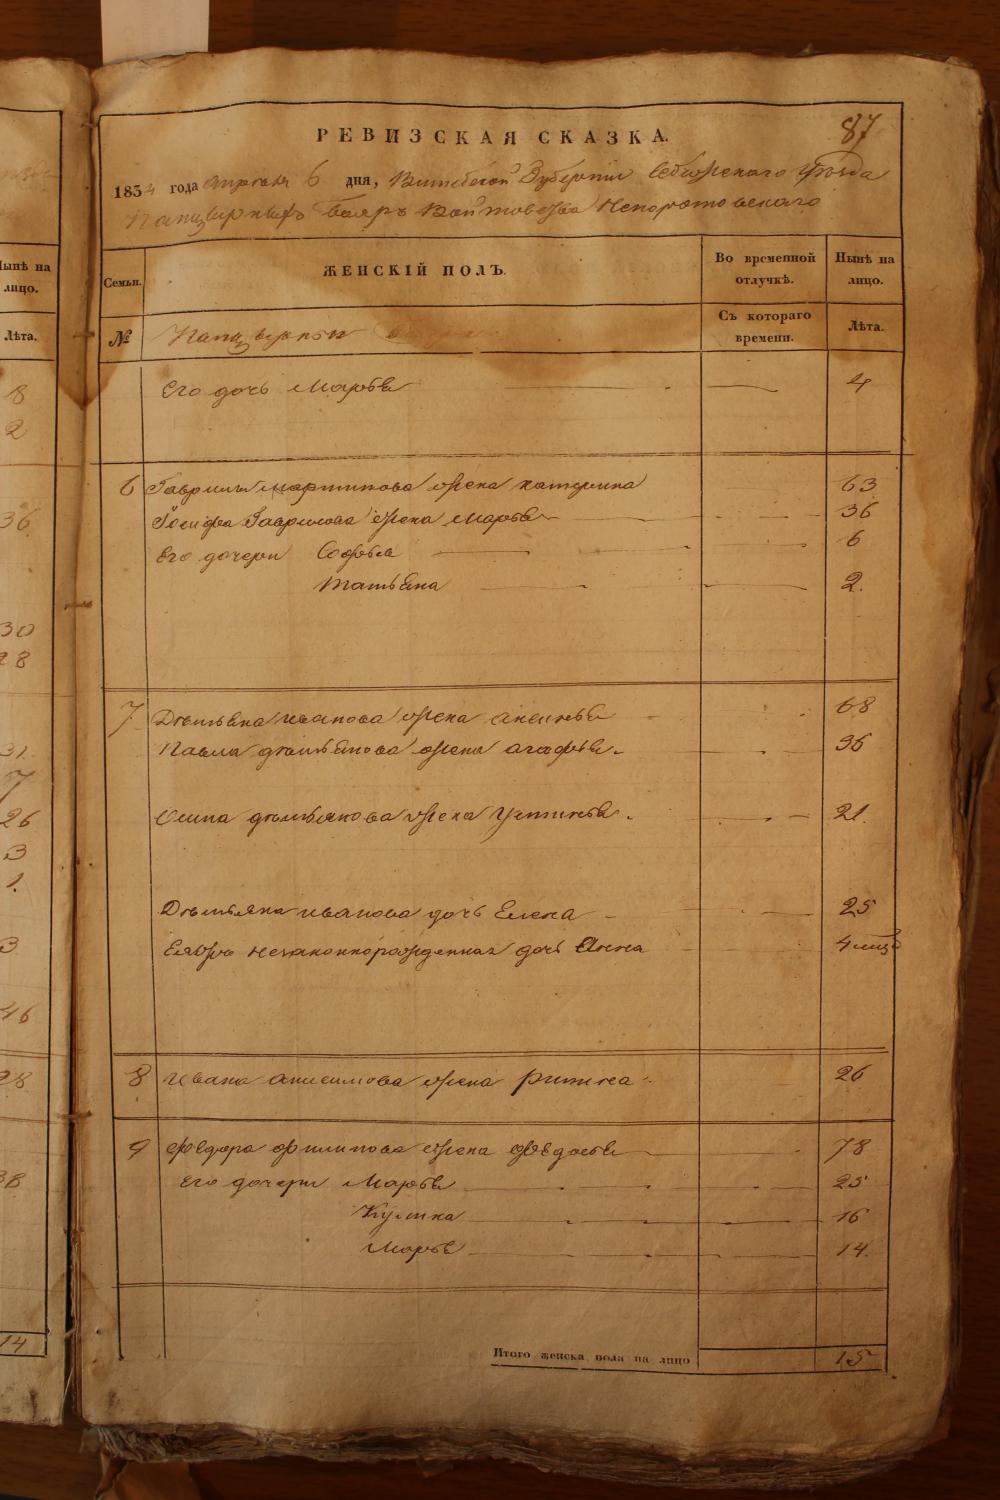 87
РЕВИЗСКАЯ СКАЗКА.
1834 года апреля 6 дня, Витебской Губернiи Себежскаго Уѣзда
Панцырныхъ Бояръ Войтовства Непоротовскаго
Семьи. ЖЕНСКIЙ ПОЛЪ. Во временной отлучкѣ. Нынѣ на лицо.
№ Панцырныя Съ котораго времени. Лѣта.
Его дочь Марья 4
6 Гаврилы Мартинова жена Катерина 63
Гаврилова жена Марья 36
Его дочери Софья 6
Татьяна 2.
7 Демьяна Иванова жена Аксинья 68
Павла Демьянова жена Агафья 36
Демьянова жена Устинья 21.
Демьяна Иванова дочь Елена 25
незаконнорожденная дочь Анна 4
8 Ивана Анисимова жена 26
9 Федора Филипова жена Федосья 78
Его дочери Марья 25
Кулина 16
Марья 14.
Итого женска пола на лицо 15
Нынѣ на
лицо.
Лѣта.
8
2
36
30
31
7
26
3
1.
3
46
14